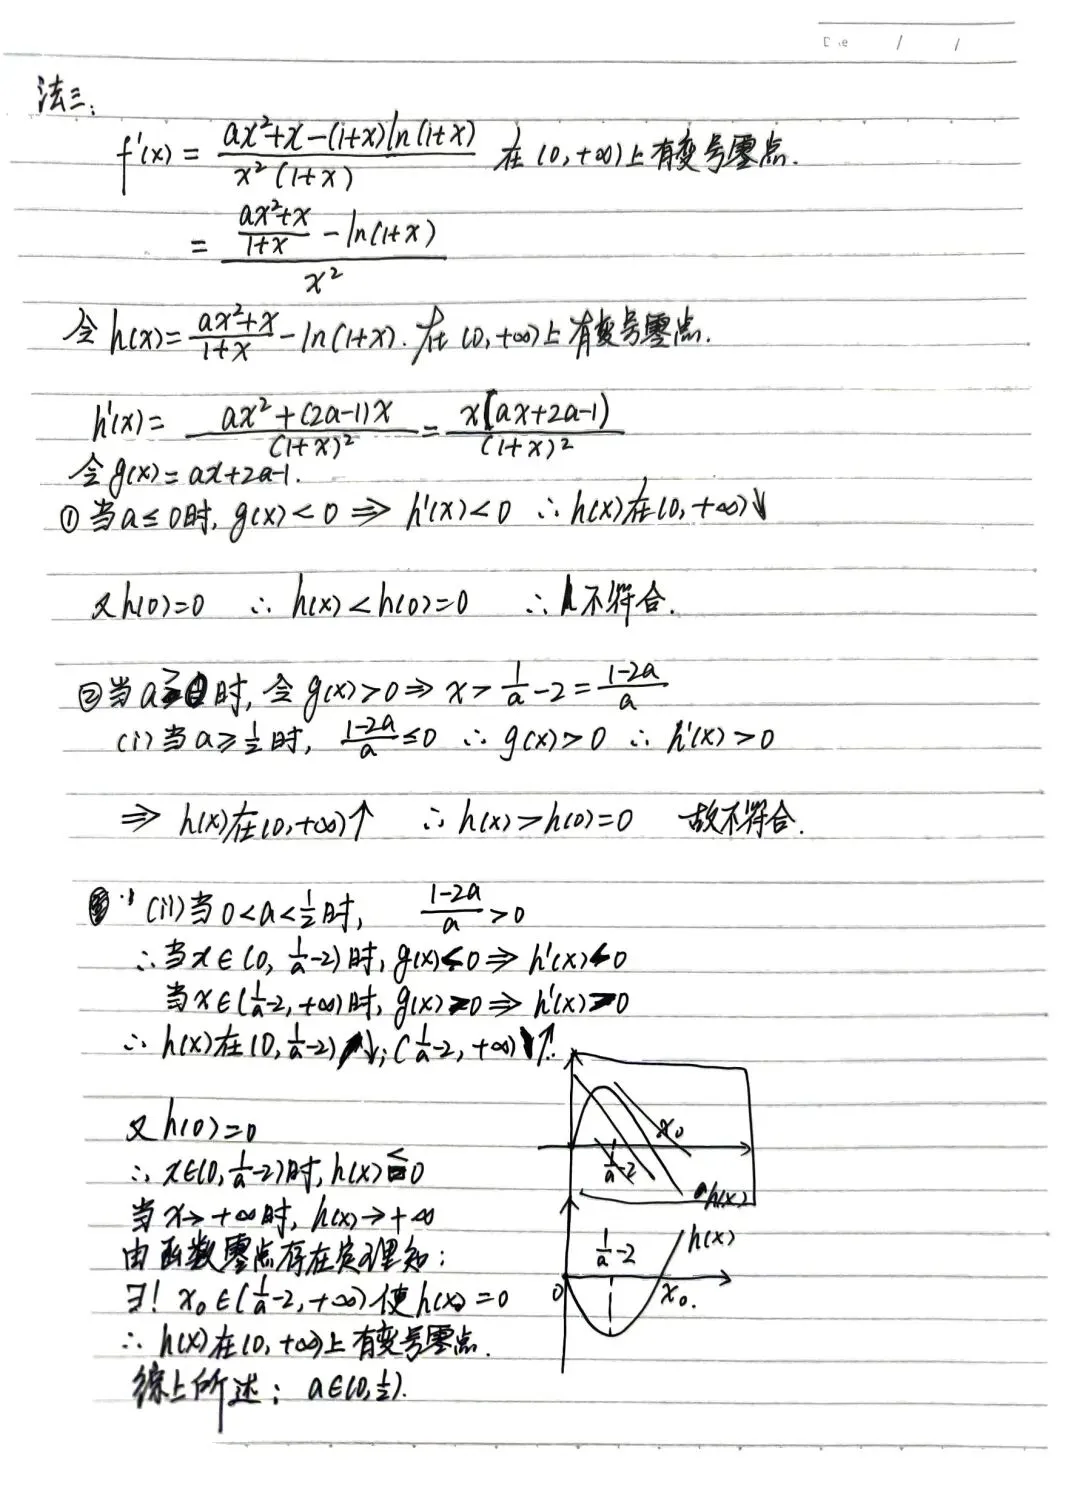 Date / /
法三:
f'(x) = \frac{ax²+x-(1+x)ln(1+x)}{x²(1+x)} 在(0,+∞)上有变号零点.
= \frac{\frac{ax²+x}{1+x} - ln(1+x)}{x²}
令h(x)=\frac{ax²+x}{1+x} - ln(1+x). 在(0,+∞)上有变号零点.
h'(x)= \frac{ax²+(2a-1)x}{(1+x)²} = \frac{x(ax+2a-1)}{(1+x)²}
令g(x)=ax+2a-1.
①当a≤0时, g(x)<0 ⇒ h'(x)<0 ∴h(x)在(0,+∞)↓
又h(0)=0 ∴ h(x)<h(0)=0 ∴ 不符合.
②当a>0时, 令g(x)>0 ⇒ x>\frac{1}{a}-2=\frac{1-2a}{a}
(i)当a≥\frac{1}{2}时, \frac{1-2a}{a}≤0 ∴ g(x)>0 ∴ h'(x)>0
⇒ h(x)在(0,+∞)↑ ∴ h(x)>h(0)=0 故不符合.
(ii)当0<a<\frac{1}{2}时, \frac{1-2a}{a}>0
∴当x∈(0,\frac{1}{a}-2)时, g(x)<0 ⇒ h'(x)<0
当x∈(\frac{1}{a}-2,+∞)时, g(x)>0 ⇒ h'(x)>0
∴ h(x)在(0,\frac{1}{a}-2)↓; (\frac{1}{a}-2,+∞)↑.
x₀
\frac{1}{a}-2
h(x)
又h(0)=0
∴ x∈(0,\frac{1}{a}-2)时, h(x)<0
当x→+∞时, h(x)→+∞
由函数零点存在定理知:
∃! x₀∈(\frac{1}{a}-2,+∞)使h(x₀)=0
∴ h(x)在(0,+∞)上有变号零点.
综上所述: a∈(0,\frac{1}{2}).
\frac{1}{a}-2 h(x)
0 x₀.